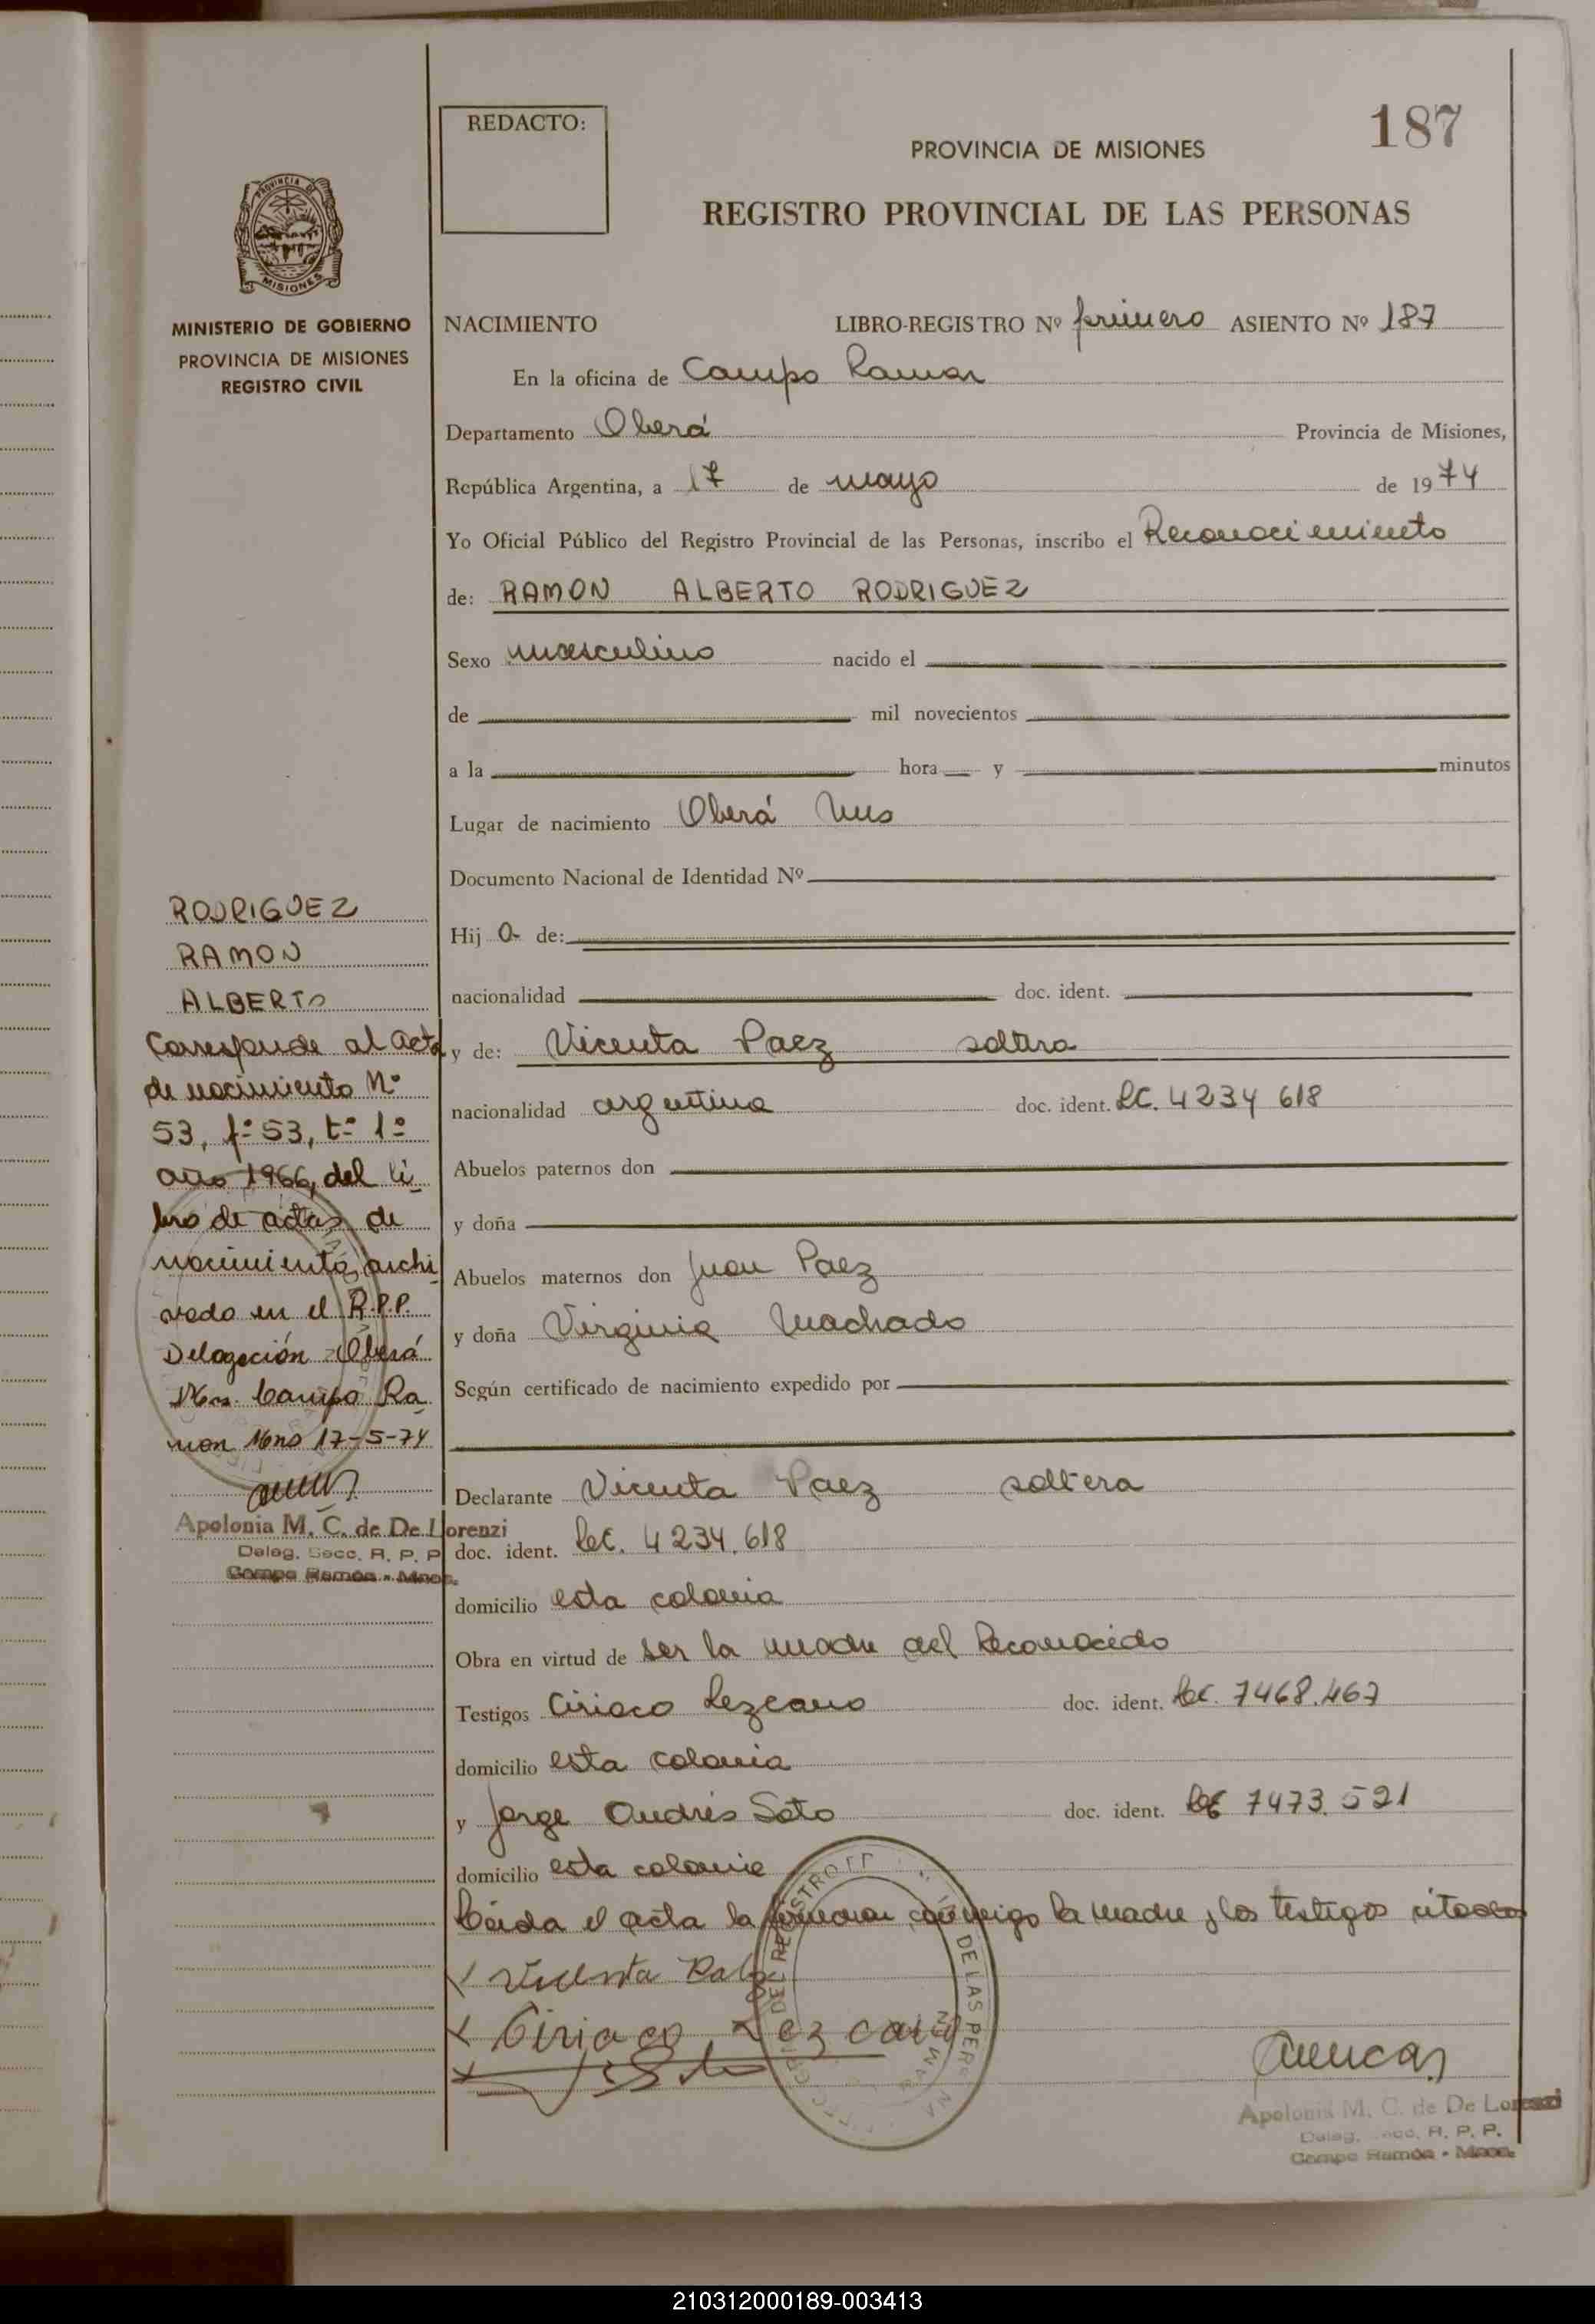 187
REDACTO:
PROVINCIA DE MISIONES
REGISTRO PROVINCIAL DE LAS PERSONAS
PROVINCIA DE
MISIONES
MINISTERIO DE GOBIERNO
PROVINCIA DE MISIONES
REGISTRO CIVIL
NACIMIENTO LIBRO-REGISTRO Nº primero ASIENTO Nº 187
En la oficina de Campo Ramon
Departamento Oberá Provincia de Misiones,
República Argentina, a 17 de mayo de 1974
Yo Oficial Público del Registro Provincial de las Personas, inscribo el Reconocimiento
de: RAMON ALBERTO RODRIGUEZ
Sexo masculino nacido el
de mil novecientos
a la hora y minutos
Lugar de nacimiento Oberá Mns
Documento Nacional de Identidad Nº
Hij o de:
nacionalidad doc. ident.
y de: Vicenta Paez soltera
nacionalidad argentina doc. ident. LC. 4234 618
Abuelos paternos don
y doña
Abuelos maternos don Juan Paez
y doña Virginia Machado
Según certificado de nacimiento expedido por
Declarante Vicenta Paez soltera
doc. ident. LC. 4 234.618
domicilio esta colonia
Obra en virtud de ser la madre del Reconocido
Testigos Ciriaco Lezcano doc. ident. 7468.467
domicilio esta colonia
y Jorge Andrés Soto doc. ident. 7473.521
domicilio esta colonia
Leída el acta la firman conmigo la madre y los testigos citados
Vicenta Paez
Ciriaco Lezcano
RODRIGUEZ
RAMON
ALBERTO
Corresponde al acta
de nacimiento Nº
53, fº 53, tº 1º
año 1966, del li-
bro de actas de
nacimiento, archi-
vado en el R.P.P.
Delegación Oberá
Mns. Campo Ra-
mon Mns 17-5-74
Apolonia M. C. de De Lorenzi
Deleg. Secc. R. P. P.
Campo Ramón - Mnes.
Apolonia M. C. de De Lorenzi
Deleg. Secc. R. P. P.
Campo Ramón - Mnes.
210312000189-003413